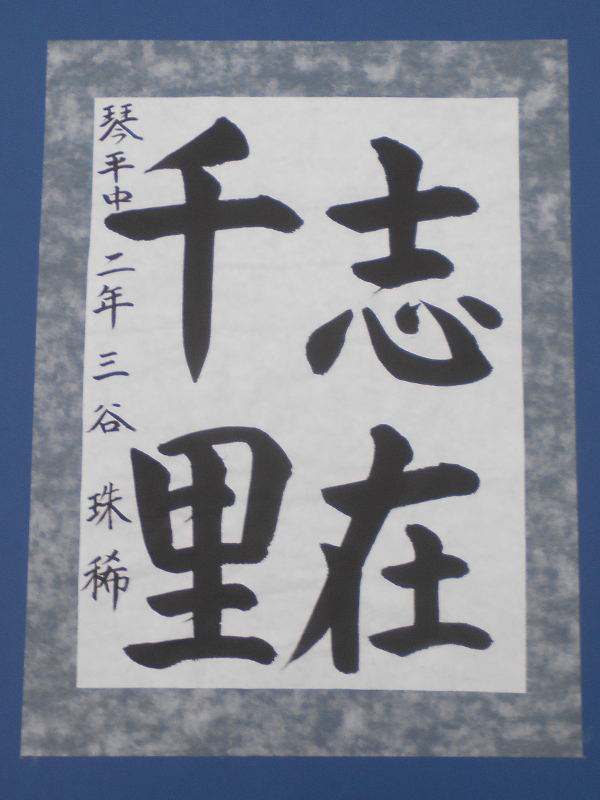 志在
千里
琴平中 二年 三谷 珠稀